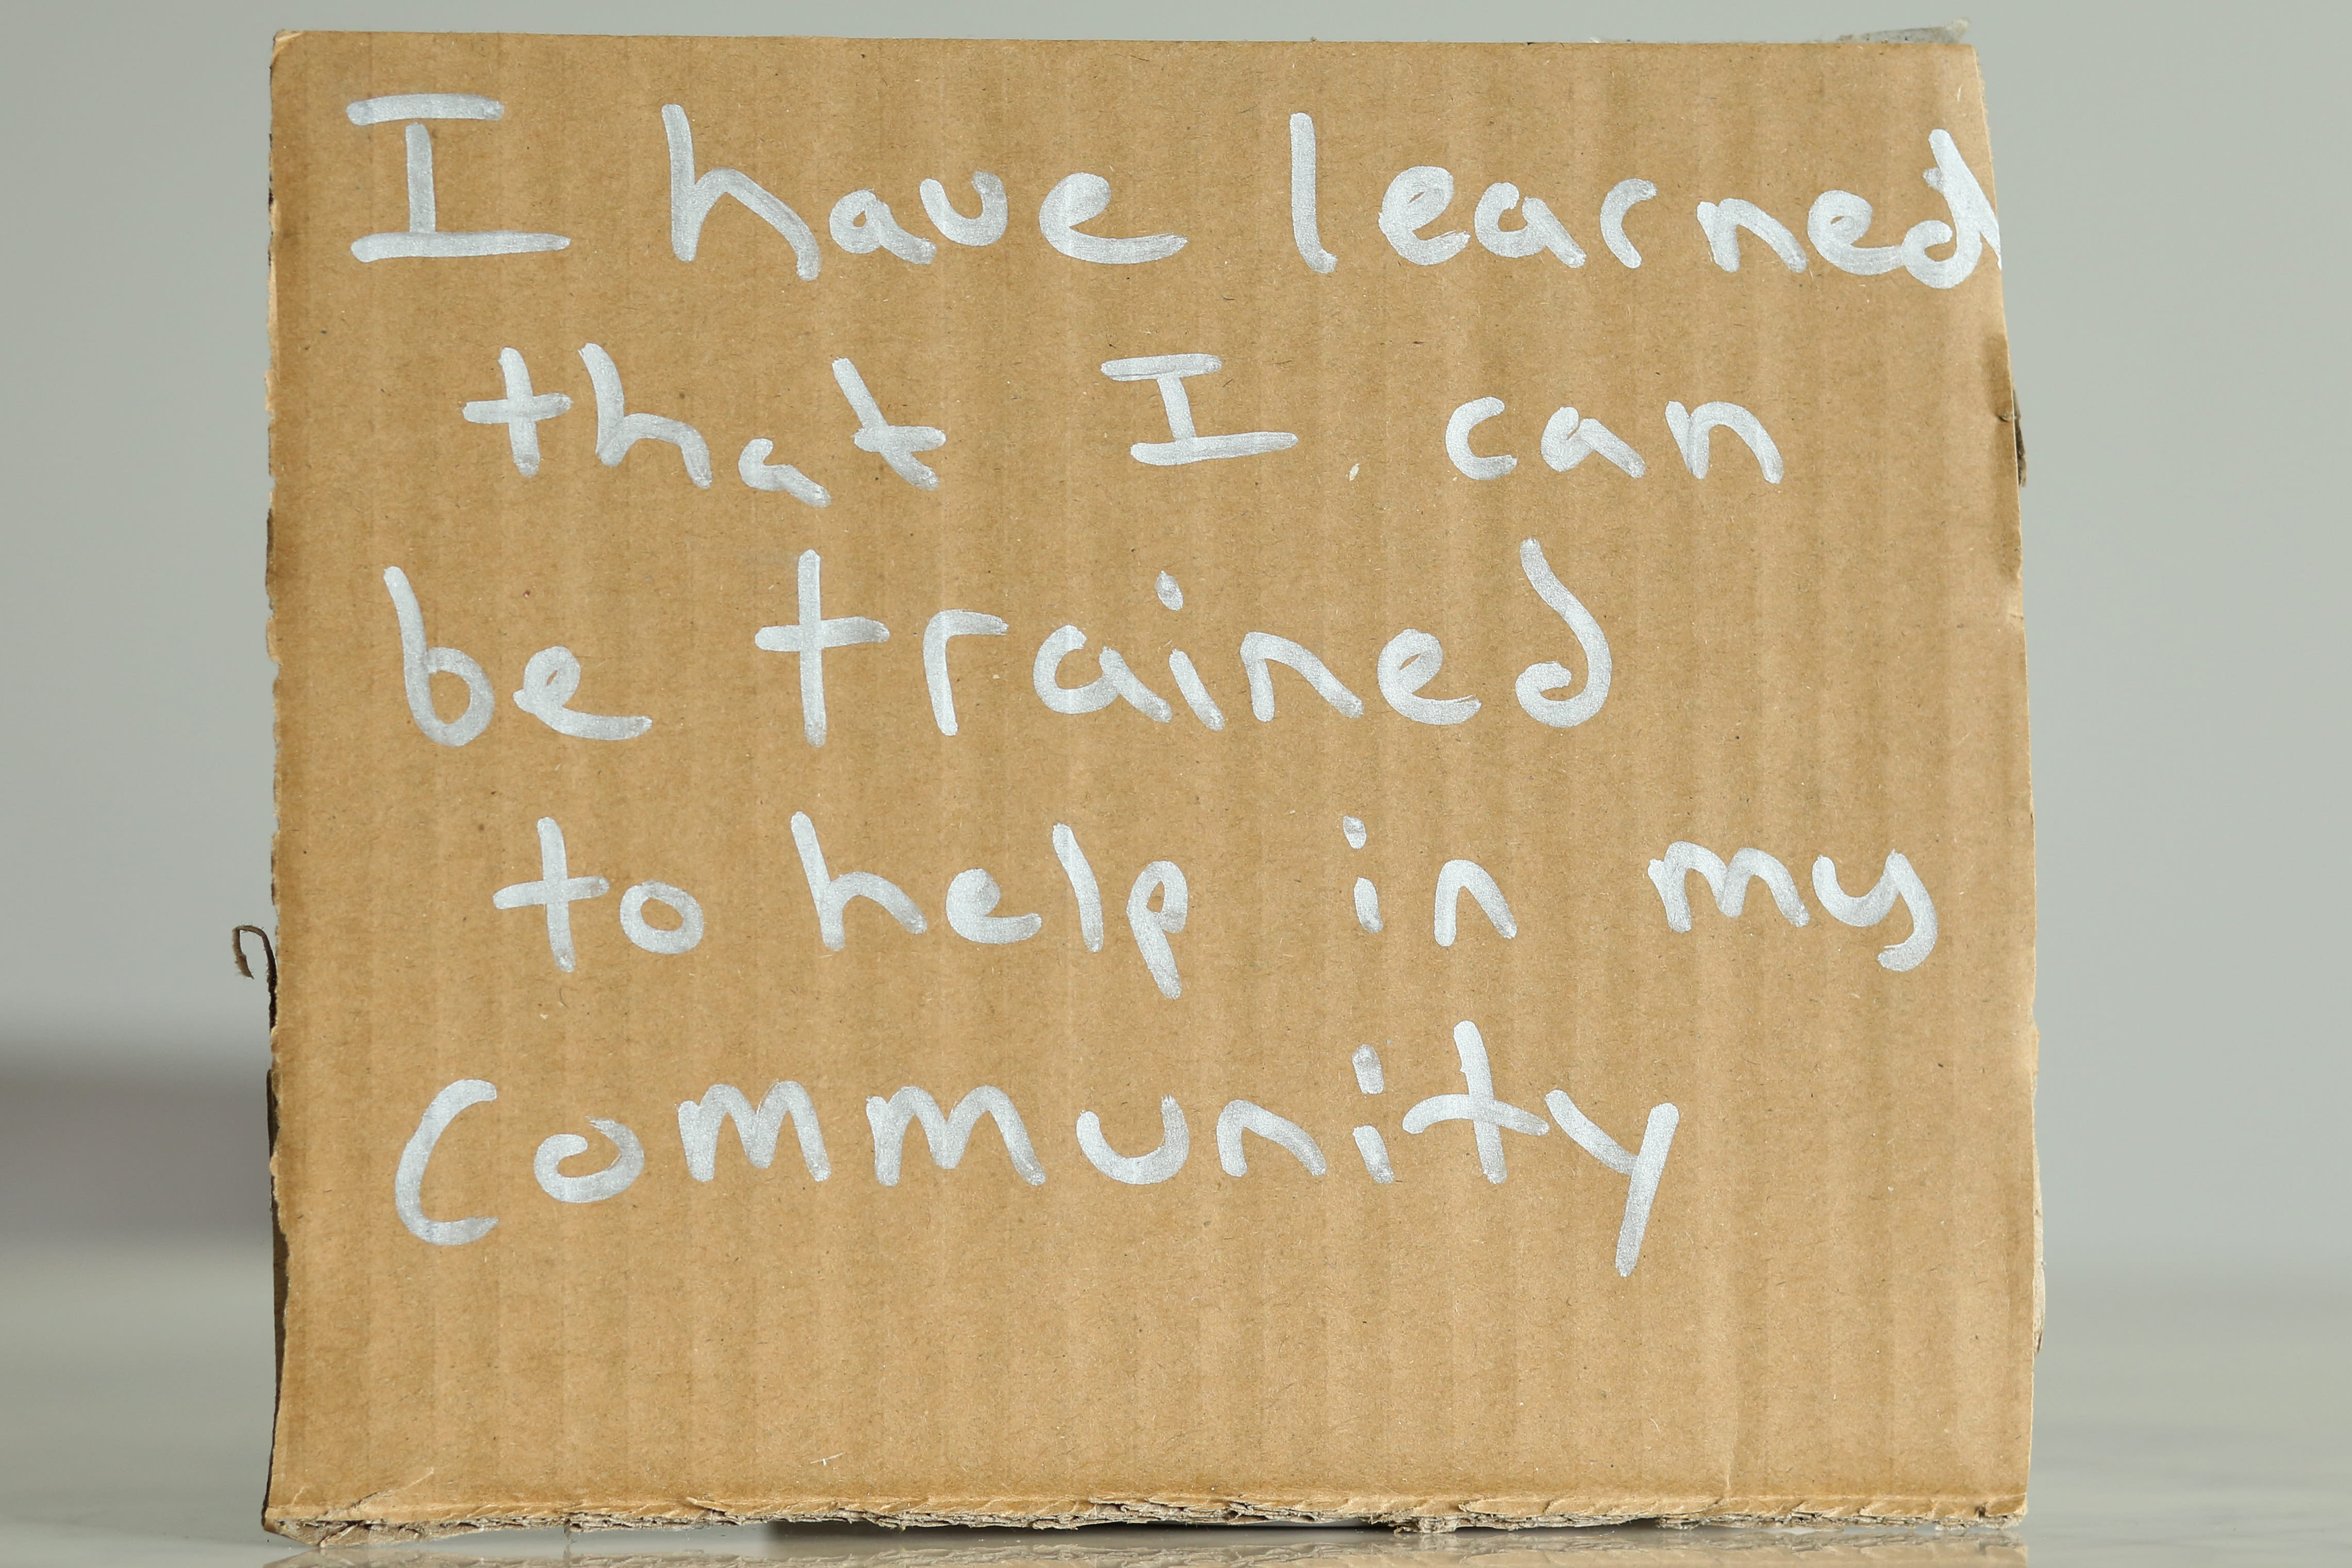 I have learned
that I can
be trained
to help in my
Community